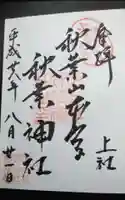 奉拝
上社
秋葉山本宮
秋葉神社
平成廿八年八月廿一日